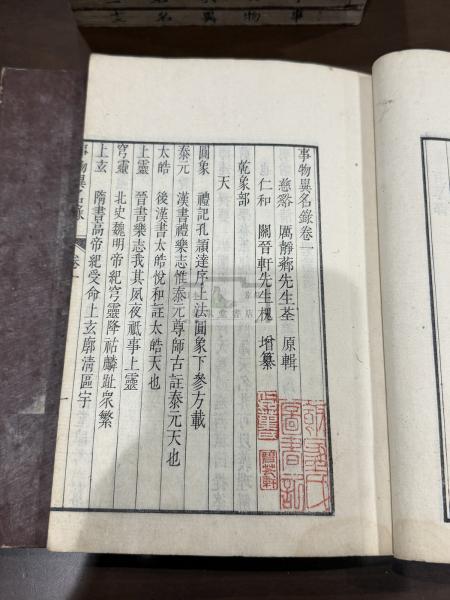 事物異名錄卷一
慈谿 厲靜薌先生荃 原輯
仁和 關晉軒先生槐 增纂
乾象部
天
圓象 禮記孔穎達序上法圓象下參方載
泰元 漢書禮樂志惟泰元尊師古註泰元天也
太皓 後漢書太皓悅和註太皓天也
上靈 晉書樂志我其夙夜祗事上靈
穹靈 北史魏明帝紀穹靈降祐麟趾衆繁
上玄 隋書高帝紀受命上玄廓清區宇
事物異名錄 卷一 一